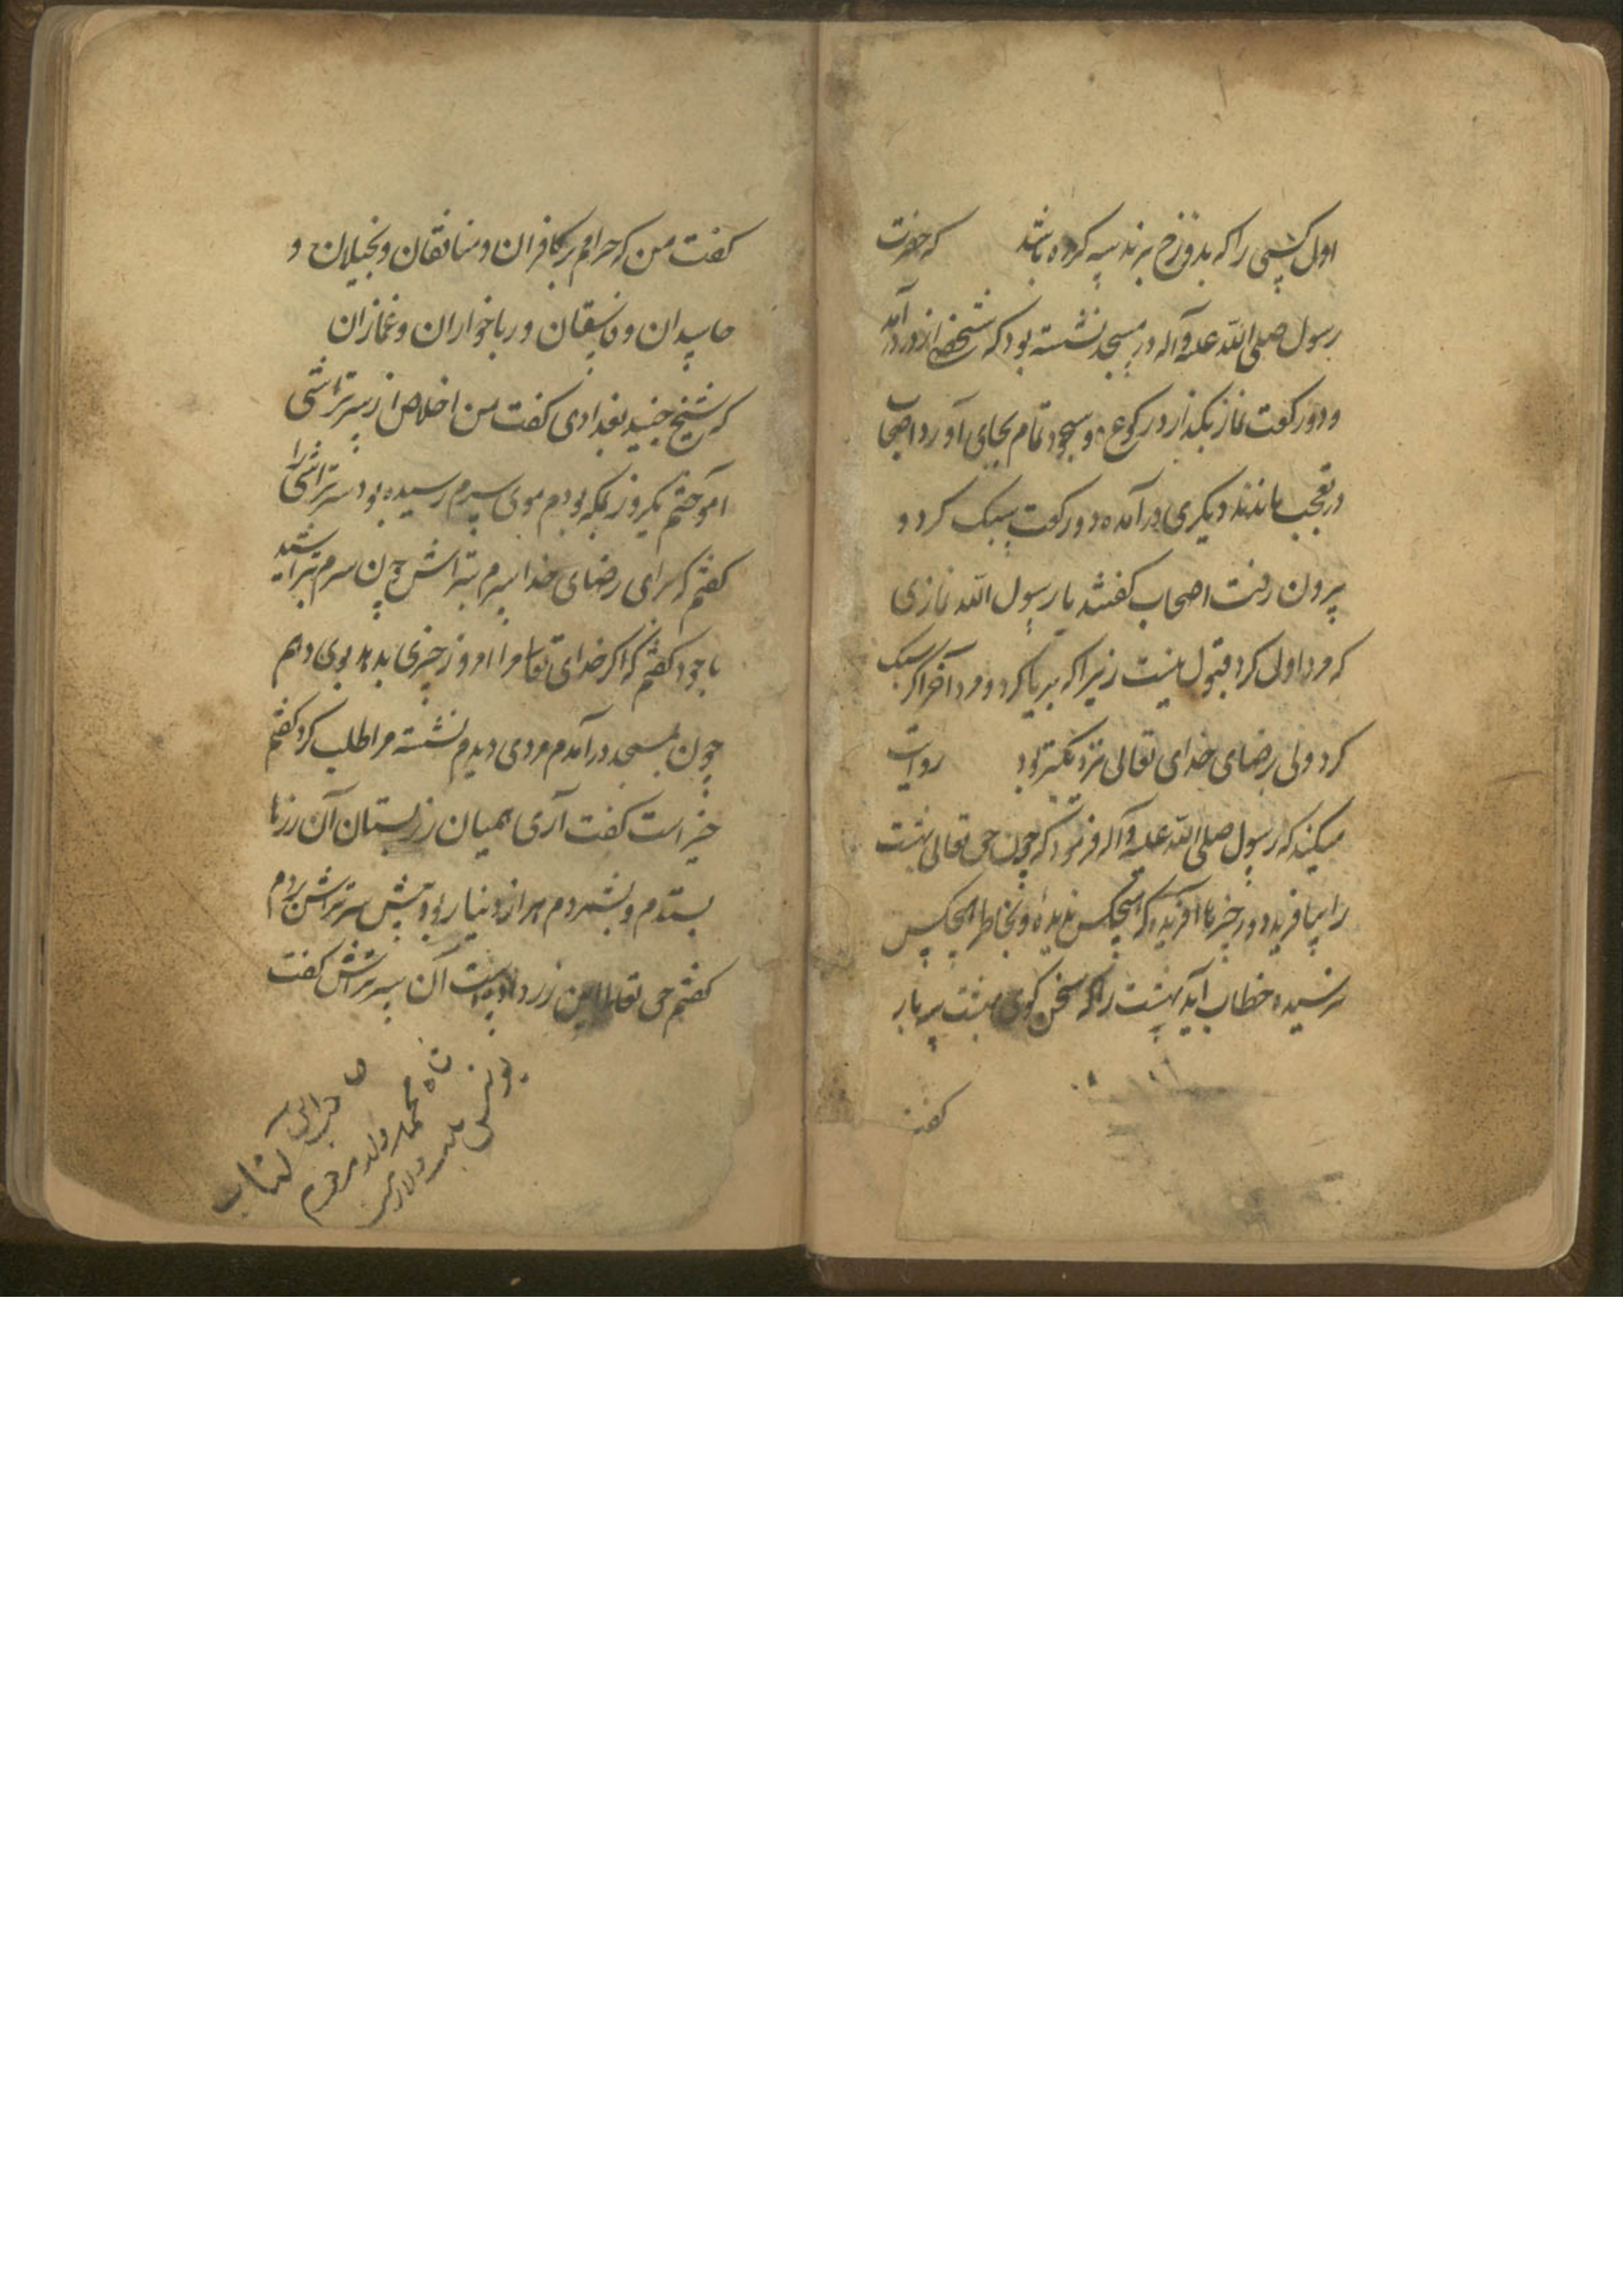 اول کسی را که بدوزخ برند سیه کرده باشد که حضرت
رسول صلی الله علیه و آله در مسجد نشسته بود که شخصی از در درآمد
و دو رکعت نماز بگذارد رکوع و سجود تمام بجای آورد اصحاب
در تعجب ماندند دیگری درآمده دو رکعت سبک کرد و
بیرون رفت اصحاب گفتند یا رسول الله نمازی
که مرد اولی کرد قبول نیست زیرا که بریا کرد و مرد آخر اگر سبک
کرد ولی برضای خدای تعالی نزدیکتر بود روایت
میکنند که رسول صلی الله علیه و آله فرمود که چون حق تعالی بهشت
را بیافرید درو چیزها آفریده که هیچکس ندیده و بخاطر هیچکس
نرسیده خطاب آید بهشت را که سخن گوی بهشت سه بار
گفت
گفت من که حرامم بر کافران و منافقان و بخیلان و
حاسدان و فاسقان و رباخواران و غمازان
که شیخ جنید بغدادی گفت من اخلاص از سرتراشی
آموختم یکروز بمکه بودم موی سرم رسیده بود سرتراشی را
گفتم که برای رضای خدا سرم بتراش چون سرم تراشید
با خود گفتم که اگر خدای تعالی مرا امروز چیزی بدهد بوی دهم
چون بمسجد درآمدم مردی دیدم نشسته مرا طلب کرد گفتم
خیر است گفت آری همیان زر بستان آن زرها
بستدم و بشمردم هزار دینار بود پیش سرتراش بردم
گفتم حق تعالی این زر داده است آن سرتراش گفت
صاحب این کتاب
شاه محمد ولد مرحوم
یونس